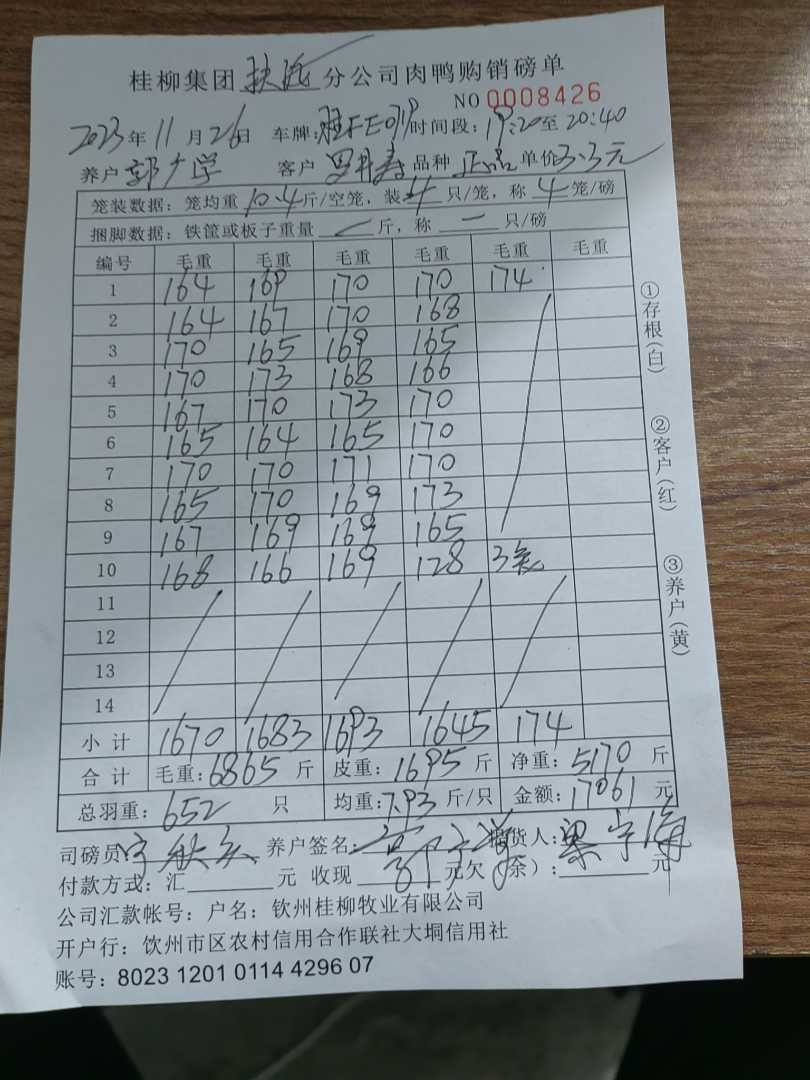 桂柳集团扶远分公司肉鸭购销磅单
NO 0008426
2023年11月26日 车牌: 时间段:19:20至20:40
养户 郭广学 客户 品种 正品 单价3.3元
笼装数据:笼均重10.4斤/空笼,装4只/笼,称4笼/磅
捆脚数据:铁筐或板子重量 — 斤,称 — 只/磅
编号 毛重 毛重 毛重 毛重 毛重 毛重
1 164 169 170 170 174
2 164 167 170 168
3 170 165 169 165
4 170 173 168 166
5 167 170 173 170
6 165 164 165 170
7 170 170 171 170
8 165 170 169 173
9 167 169 169 165
10 168 166 169 128 3笼
11
12
13
14
小计 1670 1683 1693 1645 174
合计 毛重:6865斤 皮重:1695斤 净重:5170斤
总羽重:652只 均重:7.93斤/只 金额:17061元
司磅员: 养户签名: 提货人:
付款方式:汇 元 收现 元欠(余):元
公司汇款帐号:户名:钦州桂柳牧业有限公司
开户行:钦州市区农村信用合作联社大垌信用社
账号:8023 1201 0114 4296 07
①存根(白)
②客户(红)
③养户(黄)